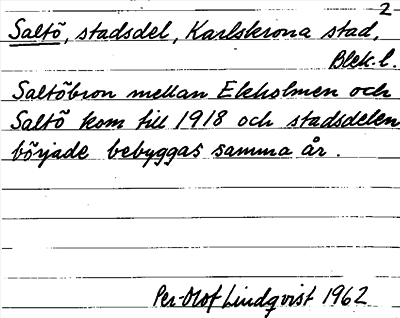 2
Saltö, stadsdel, Karlskrona stad,
Blek.l.
Saltöbron mellan Ekholmen och
Saltö kom till 1918 och stadsdelen
började bebyggas samma år.
Per-Olof Lindqvist 1962